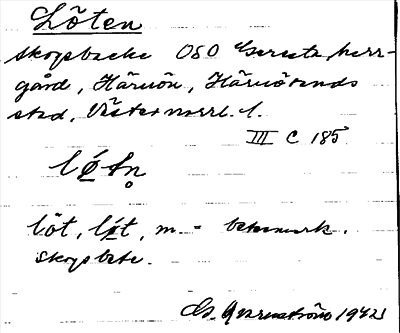 Löten
skogsbacke OSO Geresta herr-
gård, Härnön, Härnösands
stad, Västernorrl. l.
III C 185
lǿtn̥
löt, lø̄t, m. = betesmark.
Skogsbete.
1942